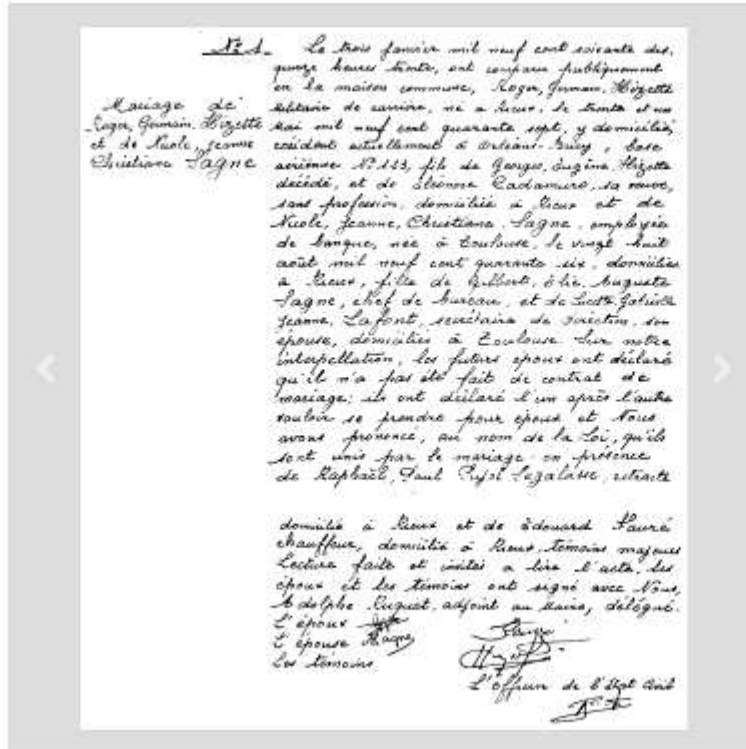 N° 1
Mariage de
Roger, Germain, Mizette
et de Nicole, Jeanne
Christiane Sagne
Le trois janvier mil neuf cent soixante dix,
quinze heures trente, ont comparu publiquement
en la maison commune, Roger, Germain, Mizette
militaire de carrière, né à Rieux, le trente et un
mai mil neuf cent quarante sept, y domicilié,
résidant actuellement à Orléans-Bricy, base
aérienne N° 123, fils de Georges, Eugène, Mizette
décédé, et de Eléonore Cadamuro, sa veuve,
sans profession, domiciliée à Rieux et de
Nicole, Jeanne, Christiane, Sagne, employée
de banque, née à Toulouse, le vingt huit
août mil neuf cent quarante six, domiciliée
à Rieux, fille de Gilbert, Elie, Auguste
Sagne, chef de bureau, et de Lucette, Gabrielle
Jeanne, Lafont, secrétaire de direction, son
épouse, domiciliés à Toulouse. Sur notre
interpellation, les futurs époux ont déclaré
qu'il n'a pas été fait de contrat de
mariage; ils ont déclaré l'un après l'autre
vouloir se prendre pour époux et Nous
avons prononcé, au nom de la Loi, qu'ils
sont unis par le mariage en présence
de Raphaël, Paul Pujol Segalasse, retraité
domicilié à Rieux et de Edouard Fauré
chauffeur, domicilié à Rieux, témoins majeurs
Lecture faite et invités à lire l'acte, les
époux et les témoins ont signé avec Nous,
Adolphe Puguet, adjoint au maire, délégué.
L'époux
L'épouse Sagne
Les témoins
L'Officier de l'Etat Civil